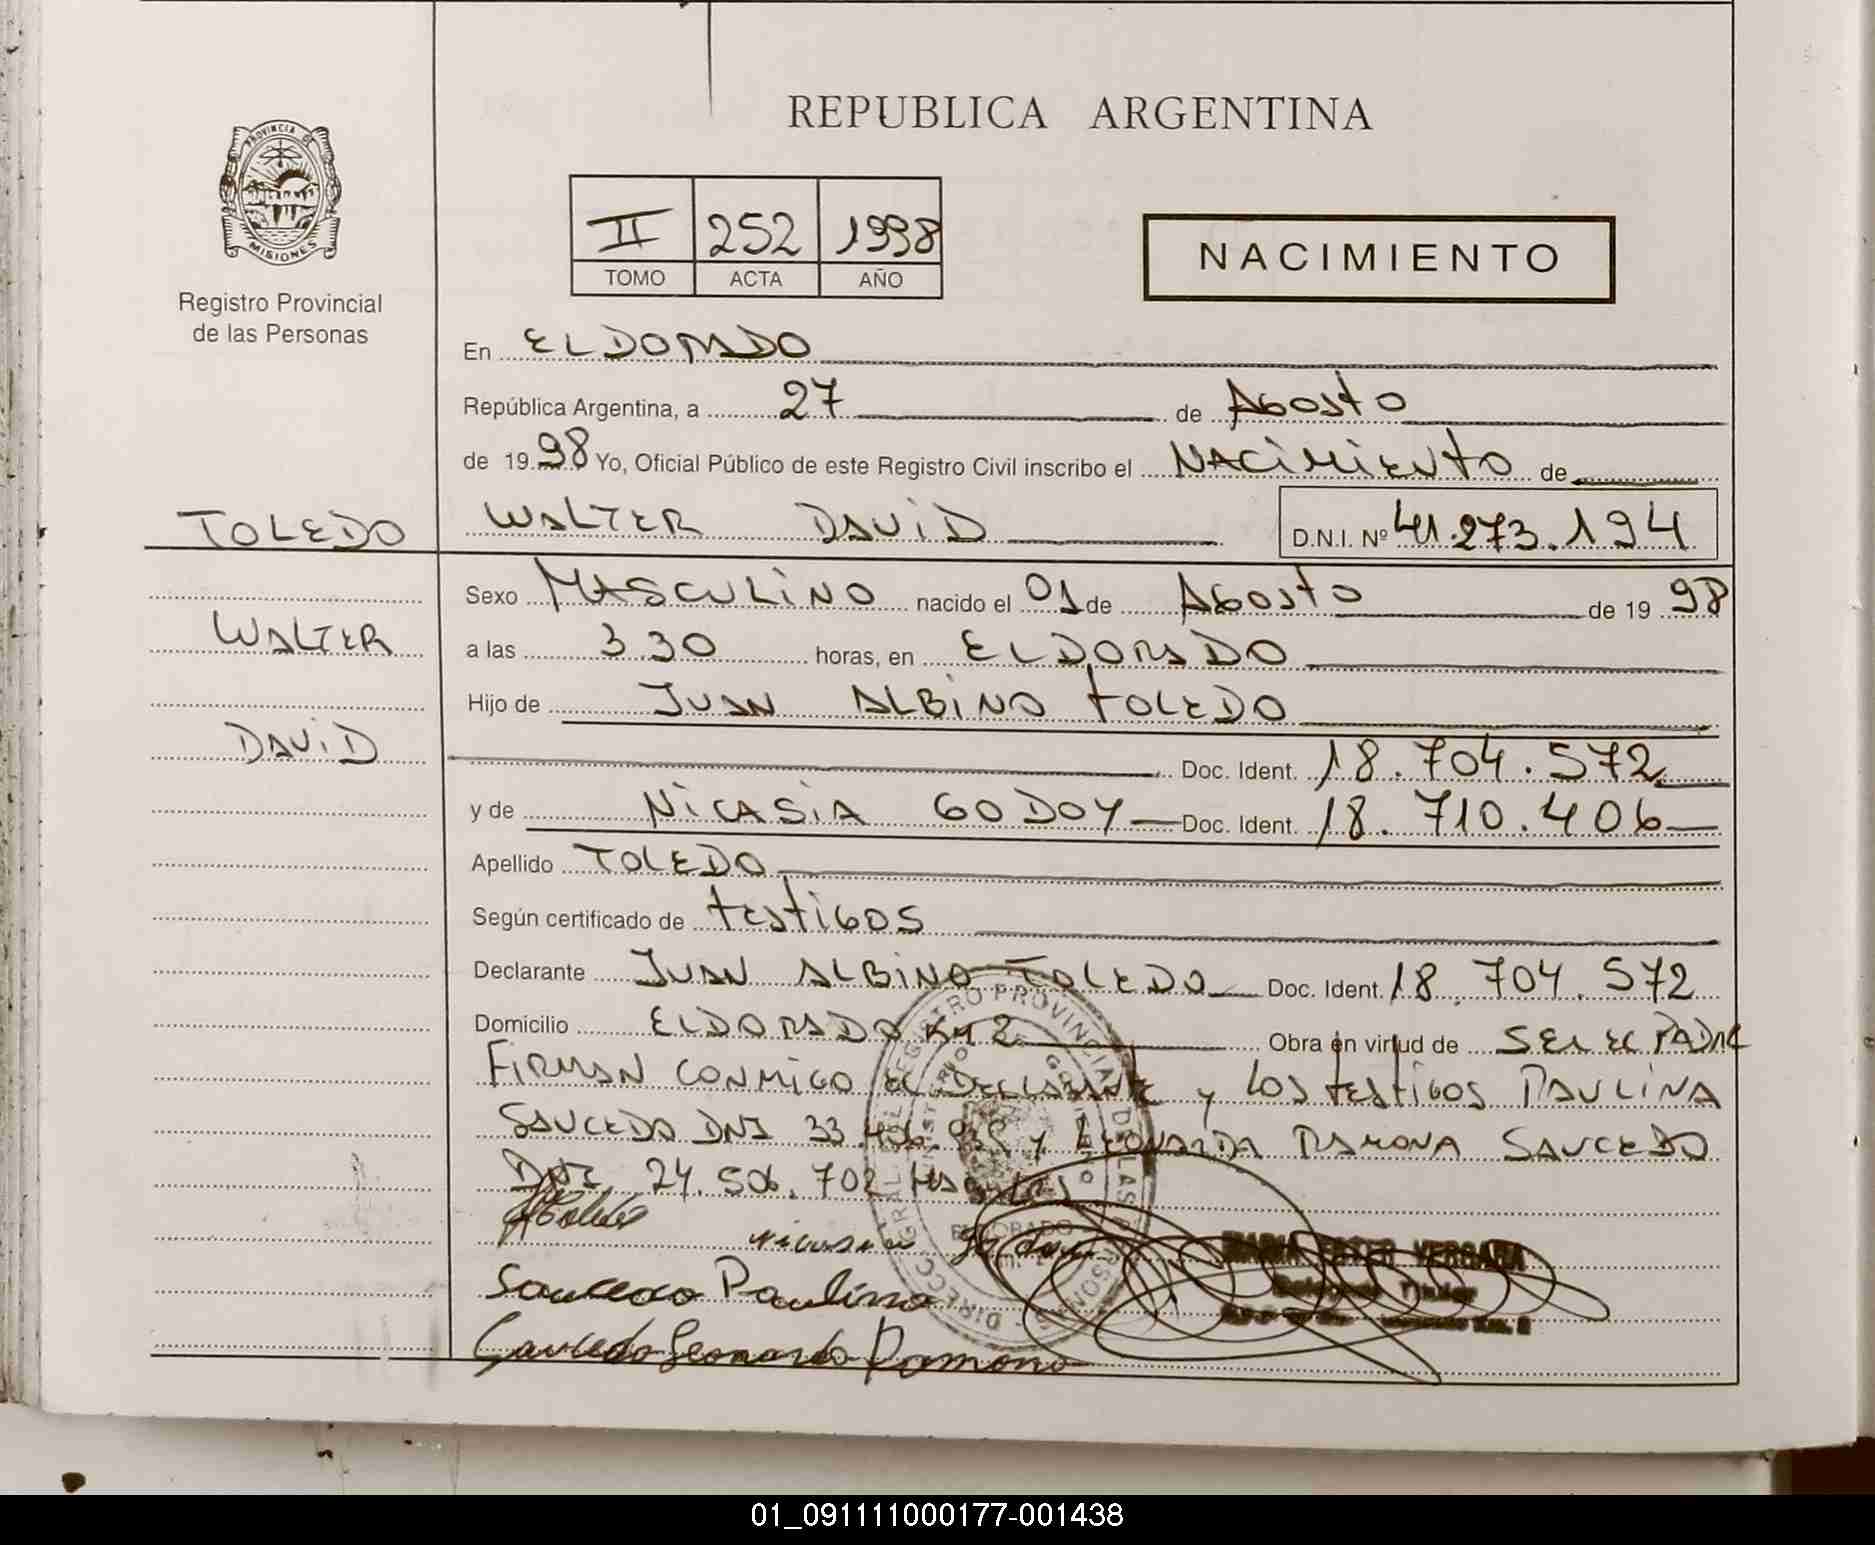 REPUBLICA ARGENTINA
PROVINCIA DE
MISIONES
Registro Provincial
de las Personas
II 252 1998
TOMO ACTA AÑO
NACIMIENTO
En ELDORADO
República Argentina, a 27 de Agosto
de 1998 Yo, Oficial Público de este Registro Civil inscribo el NACIMIENTO de
TOLEDO WALTER DAVID D.N.I. Nº 41.273.194
Sexo MASCULINO nacido el 01 de Agosto de 19 98
WALTER
a las 3.30 horas, en ELDORADO
Hijo de JUAN ALBINO TOLEDO
DAVID
Doc. Ident. 18.704.572
y de NICASIA GODOY Doc. Ident. 18.710.406
Apellido TOLEDO
Según certificado de testigos
Declarante JUAN ALBINO TOLEDO Doc. Ident. 18.704.572
Domicilio ELDORADO KM 2 Obra en virtud de SER EL PADRE
FIRMAN CONMIGO EL DECLARANTE y LOS testigos PAULINA
SAUCEDO DNI 33. y LEONARDA RAMONA SAUCEDO
DNI 24.506.702
Nicasia Godoy
MARIA ESTER VERGARA
Saucedo Paulina
Delegada Titular
Saucedo Leonarda Ramona
01_091111000177-001438